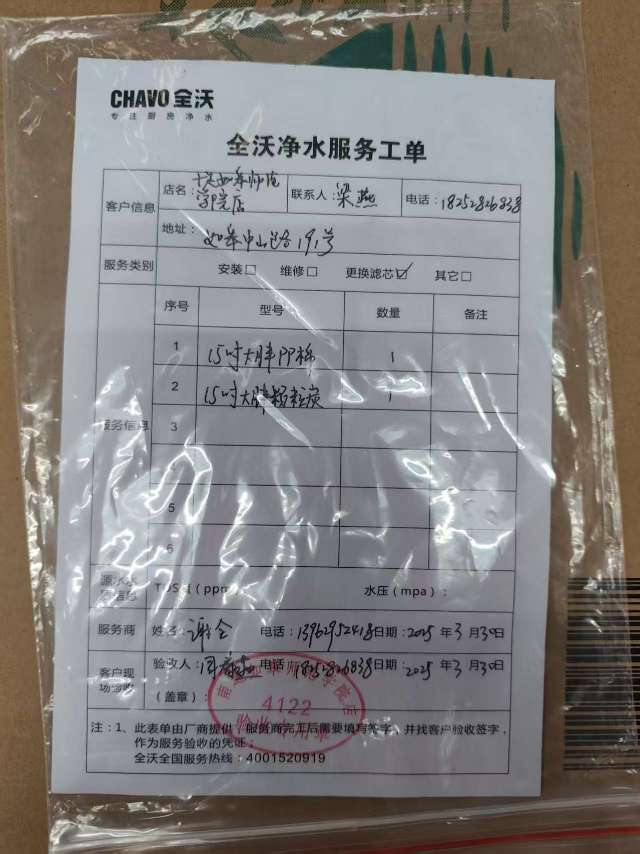 CHAVO 全沃
专注厨房净水
全沃净水服务工单
客户信息
店名：如皋师范学院店
联系人：梁燕
电话：18252826838
地址：如皋中山路191号
服务类别
安装□ 维修□ 更换滤芯☑ 其它□
服务信息
序号 型号 数量 备注
1 15吋大胖PP棉 1
2 15吋大胖颗粒炭 1
3
4
5
6
源水水质信息
TDS值(ppm)
水压（mpa）：
服务商 姓名：谢全 电话：13962952418 日期：2025年3月30日
客户现场验收
验收人： 电话：18252826838 日期：2025年3月30日
（盖章）：
4122
注：1、此表单由厂商提供，服务商完工后需要填写签字，并找客户验收签字，
作为服务验收的凭证；
全沃全国服务热线：4001520919